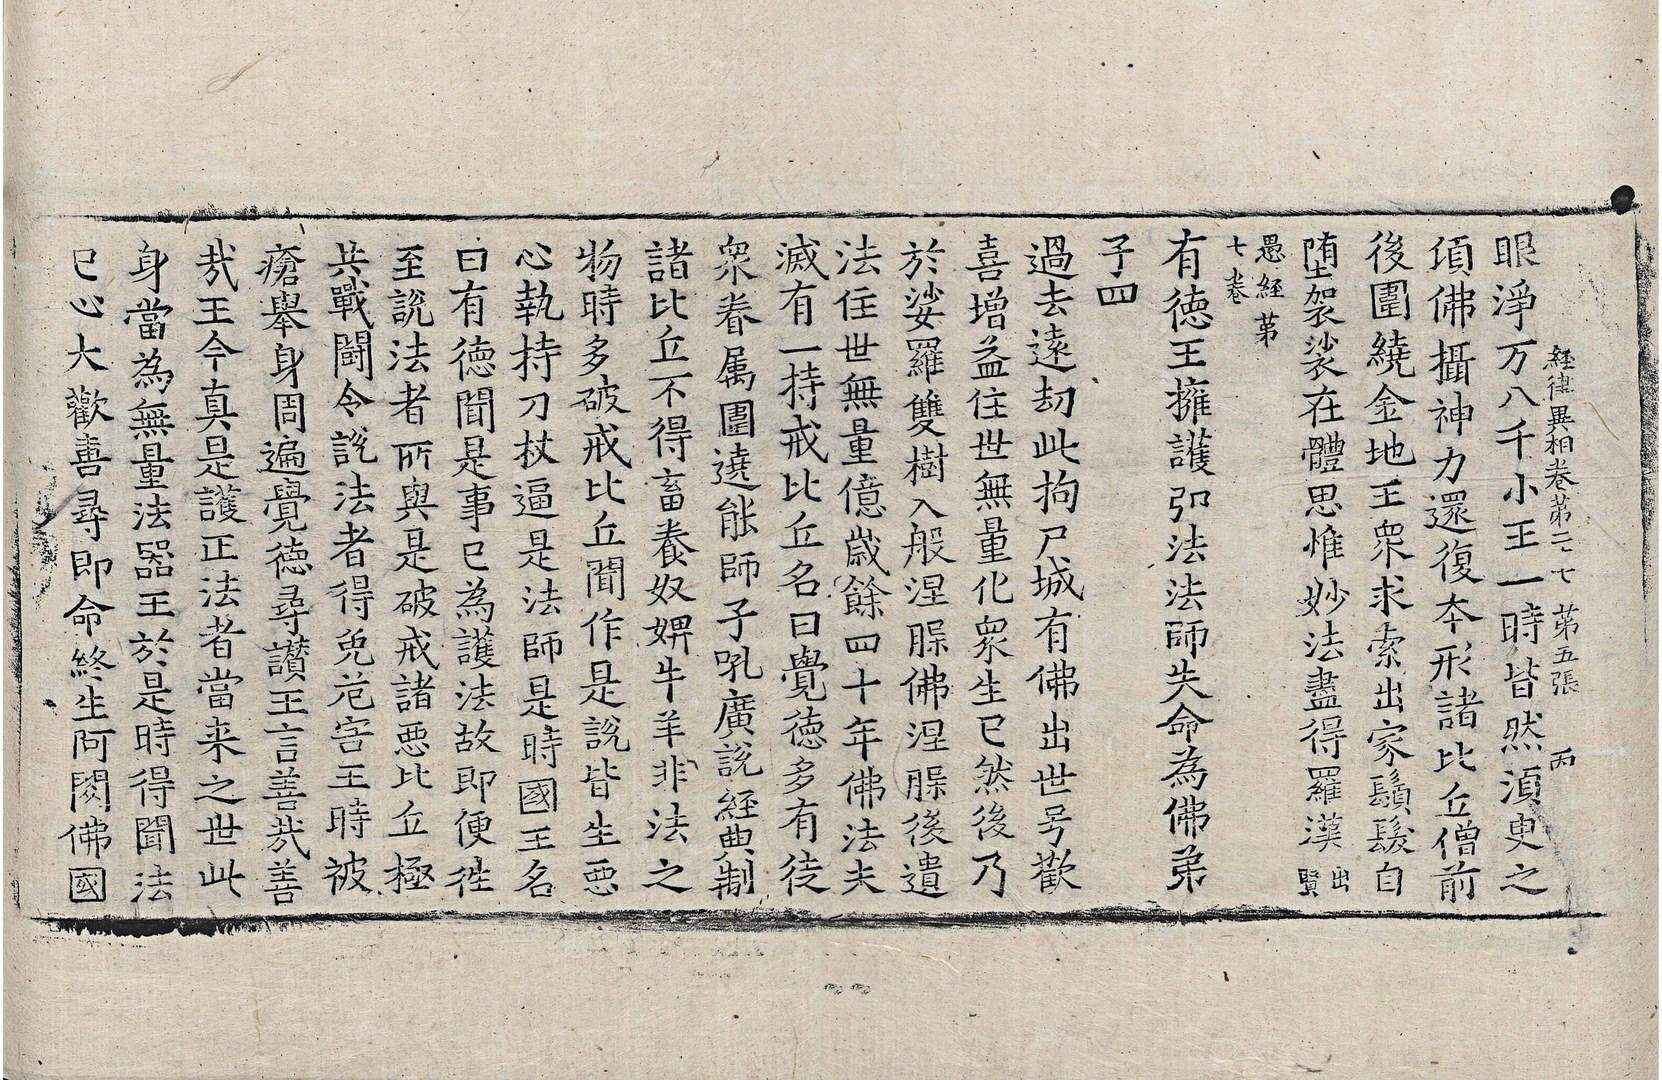 経律異相卷苐二七　苐五張　丙
眼淨万八千小王一時皆然湏臾之
項佛攝神力還復夲形諸比丘僧前
後圍繞金地王衆求索出家鬚髮自
墮袈裟在體思惟妙法盡得羅漢出賢
愚經苐
七卷
有德王擁護弘法法師失命為佛弟
子四
過去遠劫此拘尸城有佛出世号歡
喜增益住世無量化衆生已然後乃
於娑羅雙樹入般涅脲佛涅脲後遺
法住世無量億歲餘四十年佛法未
滅有一持戒比丘名曰覺德多有徒
衆眷属圍遶能師子吼廣說經典制
諸比丘不得畜養奴婢牛羊非法之
物時多破戒比丘聞作是說皆生惡
心執持刀杖逼是法師是時國王名
曰有德聞是事已為護法故即便徃
至說法者所與是破戒諸惡比丘極
共戰鬪令說法者得免危害王時被
瘡舉身周遍覺德尋讃王言善哉善
哉王今真是護正法者當来之世此
身當為無量法器王於是時得聞法
已心大歡喜尋即命終生阿閦佛國